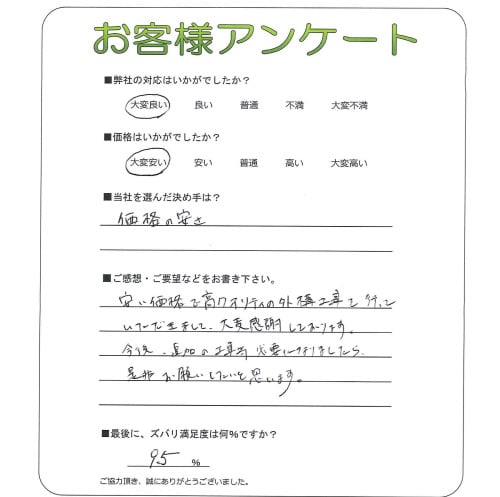 お客様アンケート
■弊社の対応はいかがでしたか?
大変良い 良い 普通 不満 大変不満
■価格はいかがでしたか?
大変安い 安い 普通 高い 大変高い
■当社を選んだ決め手は?
価格の安さ
■ご感想・ご要望などをお書き下さい。
安い価格で高クオリティの外構工事を行って
いただきまして、大変感謝しております。
今後、追加の工事が必要になりましたら、
是非お願いしたいと思います。
■最後に、ズバリ満足度は何%ですか?
95 %
ご協力頂き、誠にありがとうございました。